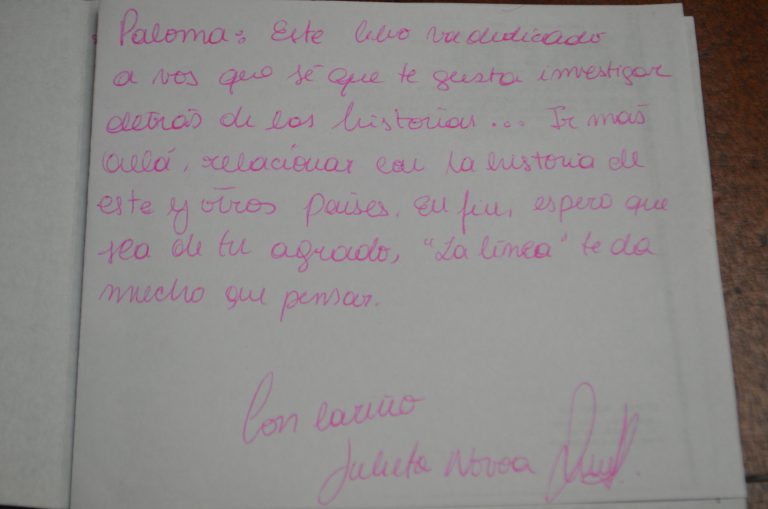 Paloma: Este libro va dedicado
a vos que sé que te gusta investigar
detrás de las historias... Ir más
allá, relacionar con la historia de
este y otros países. En fin, espero que
sea de tu agrado, "La línea" te da
mucho que pensar.
Con cariño
Julieta Novoa